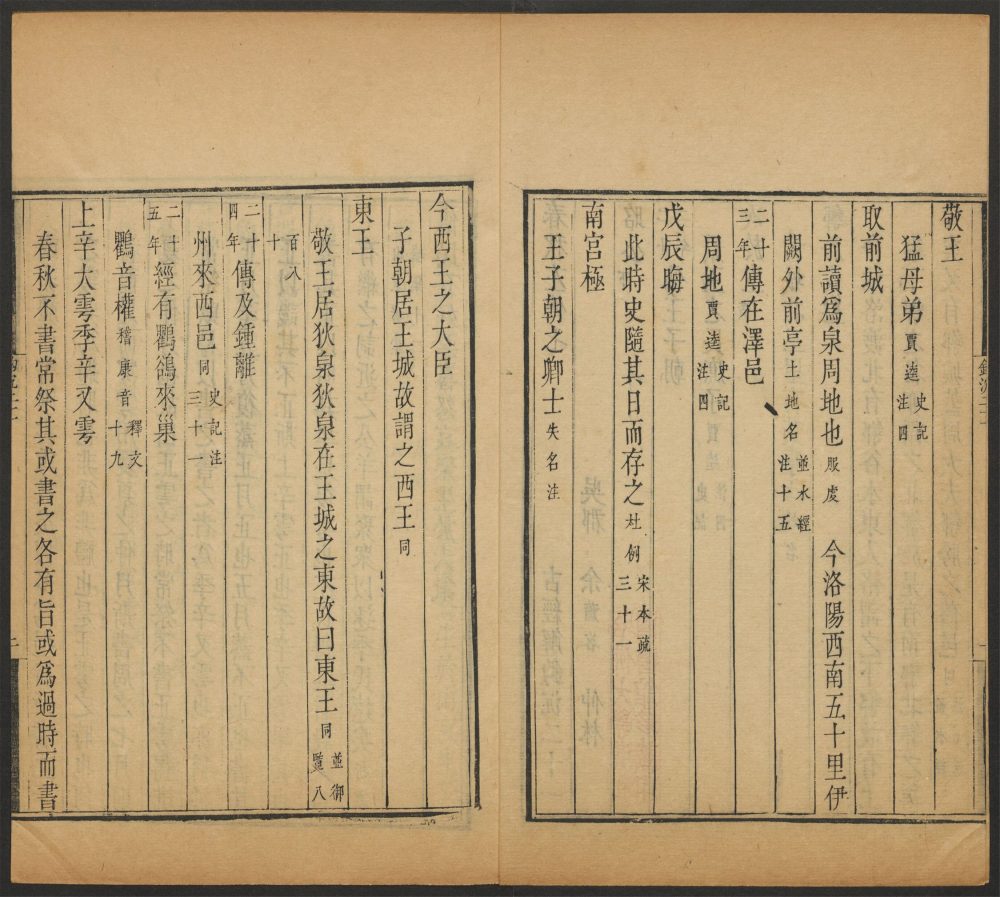 敬王
猛母弟 賈逵 史記注四
取前城
前讀爲泉周地也 服虔 今洛陽西南五十里伊
闕外前亭 土地名 並水經注十五
二十三年 傳在澤邑
周地 賈逵 史記注四
戊辰晦
此時史隨其日而存之 杜例 宋本疏三十一
南宮極
王子朝之卿士 失名注
今西王之大臣
子朝居王城故謂之西王 同
東王
敬王居狄泉狄泉在王城之東故曰東王 同 並御覽八
百八十
二十四年 傳及鍾離
州來西邑 同 史記注三十一
二十五年 經有鸜鵒來巢
鸜音權 稽康音 釋文十九
上辛大雩季辛又雩
春秋不書常祭其或書之各有旨或爲過時而書